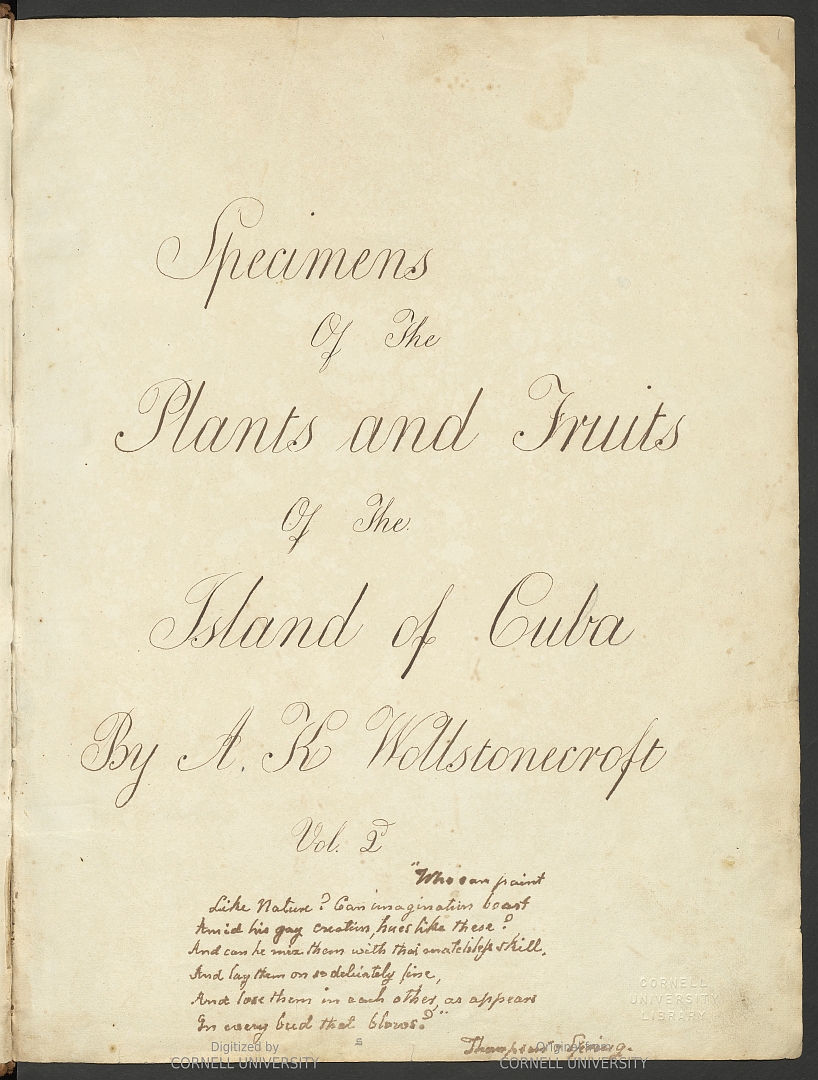 Specimens
Of The
Plants and Fruits
Of The
Island of Cuba
By A. K Wollstonecroft
Vol. 2d
"Who can paint
Like Nature? Can imagination boast
Amid his gay creation, hues like these?
And can he mix them with that matchless skill,
And lay them on so delicately fine,
And lose them in each other, as appears
In every bud that blows?"
Thompson's Spring.
CORNELL
UNIVERSITY
LIBRARY
Digitized by
CORNELL UNIVERSITY
Original from
CORNELL UNIVERSITY